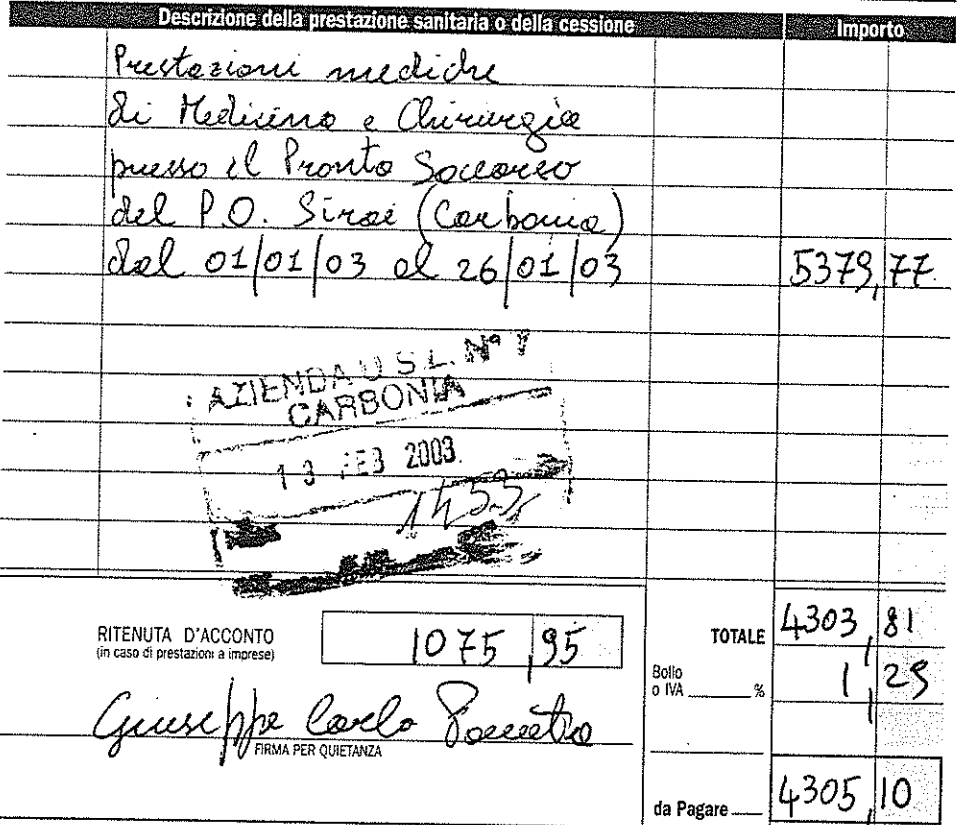 Descrizione della prestazione sanitaria o della cessione Importo
Prestazioni mediche
di Medicina e Chirurgia
presso il Pronto Soccorso
del P.O. Sirai (Carbonia)
dal 01/01/03 al 26/01/03 5379,77
AZIENDA U.S.L. N° 7
CARBONIA
13 FEB 2003
1453
RITENUTA D'ACCONTO 1075,95 TOTALE 4303,81
(in caso di prestazioni a imprese)
Bollo
o IVA % 1,29
Giuseppe Carlo
FIRMA PER QUIETANZA
da Pagare 4305,10